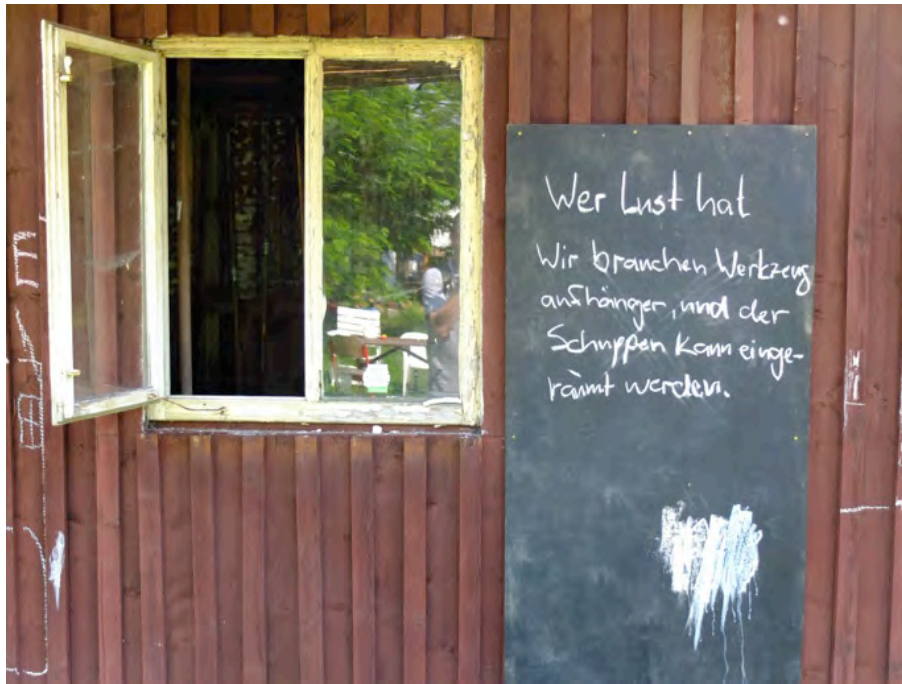 Wer Lust hat
Wir brauchen Werkzeug
aufhänger, und der
Schuppen kann einge-
räumt werden.